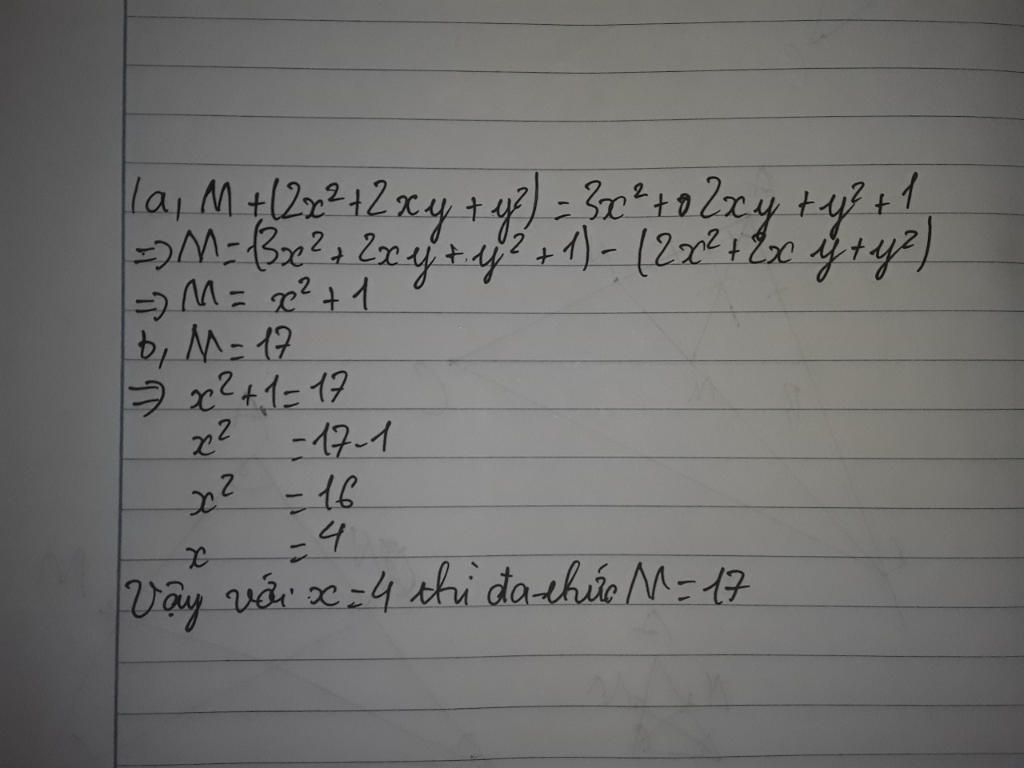 1a, M + (2x² + 2xy + y²) = 3x² + 2xy + y² + 1
=> M = (3x² + 2xy + y² + 1) - (2x² + 2xy + y²)
=> M = x² + 1
b, M = 17
=> x² + 1 = 17
x² = 17 - 1
x² = 16
x = 4
Vậy với x = 4 thì đa thức M = 17